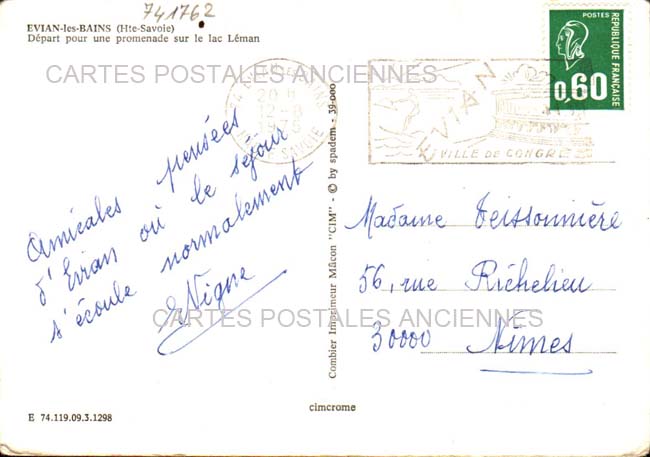 741762
EVIAN-les-BAINS (Hte-Savoie)
Départ pour une promenade sur le lac Léman
CARTES POSTALES ANCIENNES
POSTES
REPUBLIQUE FRANÇAISE
0,60
20 H
12-8
1976
EVIAN
VILLE DE CONGRÈ
Amicales pensées
d'Evian où le séjour
s'écoule normalement
Vigne
Combier Imprimeur Mâcon "CIM" - © by spadem - 39-000
Madame Teissonnière
56, rue Richelieu
CARTES POSTALES ANCIENNES
30000 Nîmes
E 74.119.09.3.1298
cimcrome